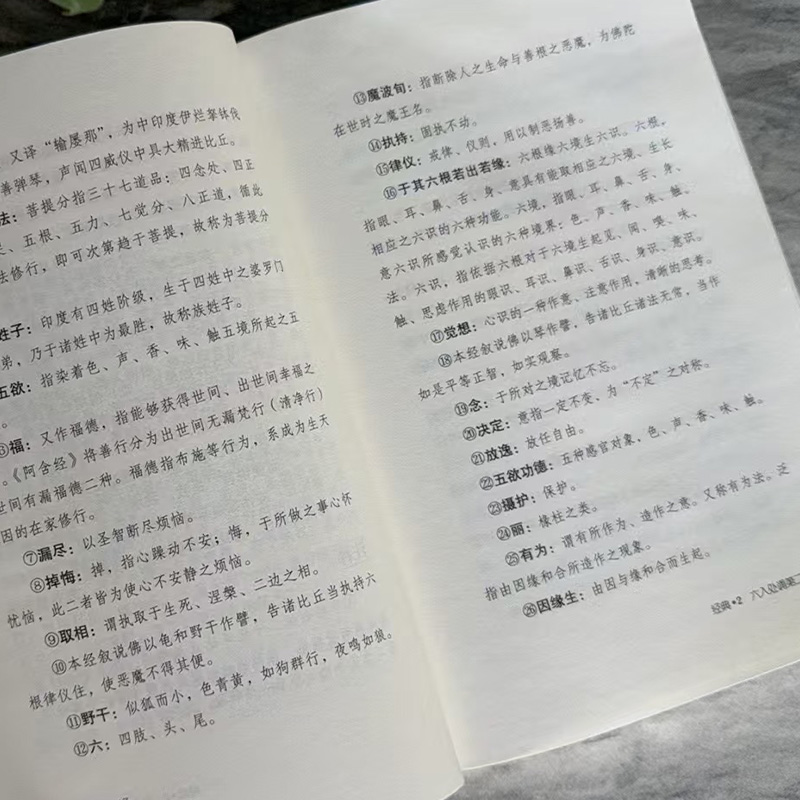 又译“输屡那”，为中印度伊烂拏钵伐
善弹琴，声闻四威仪中具大精进比丘。
法：菩提分指三十七道品：四念处、四正
五根、五力、七觉分、八正道，循此
法修行，即可次第趋于菩提，故称为菩提分
姓子：印度有四姓阶级，生于四姓中之婆罗门
弟，乃于诸姓中为最胜，故称族姓子。
五欲：指染着色、声、香、味、触五境所起之五
。
福：又作福德，指能够获得世间、出世间幸福之
。《阿含经》将善行分为出世间无漏梵行（清净行）
世间有漏福德二种。福德指布施等行为，系成为生天
因的在家修行。
⑦漏尽：以圣智断尽烦恼。
⑧掉悔：掉，指心躁动不安；悔，于所做之事心怀
忧恼，此二者皆为使心不安静之烦恼。
⑨取相：谓执取于生死、涅槃、二边之相。
⑩本经叙说佛以龟和野干作譬，告诸比丘当执持六
根律仪住，使恶魔不得其便。
⑪野干：似狐而小，色青黄，如狗群行，夜鸣如狼。
⑫六：四肢、头、尾。
⑬魔波旬：指断除人之生命与善根之恶魔，为佛陀
在世时之魔王名。
⑭执持：固执不动。
⑮律仪：戒律、仪则，用以制恶扬善。
⑯于其六根若出若缘：六根缘六境生六识。六根，
指眼、耳、鼻、舌、身、意具有能取相应之六境、生长
相应之六识的六种功能。六境，指眼、耳、鼻、舌、身、
意六识所感觉认识的六种境界：色、声、香、味、触、
法。六识，指依据六根对于六境生起见、闻、嗅、味、
触、思虑作用的眼识、耳识、鼻识、舌识、身识、意识。
⑰觉想：心识的一种作意、注意作用，清晰的思考。
⑱本经叙说佛以琴作譬，告诸比丘诸法无常，当作
如是平等正智，如实观察。
⑲念：于所对之境记忆不忘。
⑳决定：意指一定不变，为“不定”之对称。
㉑放逸：放任自由。
㉒五欲功德：五种感官对象，色、声、香、味、触。
㉓摄护：保护。
㉔丽：缘柱之类。
㉕有为：谓有所作为、造作之意。又称有为法。泛
指由因缘和合所造作之现象。
㉖因缘生：由因与缘和合而生起。
经典•2 六入处诵第二